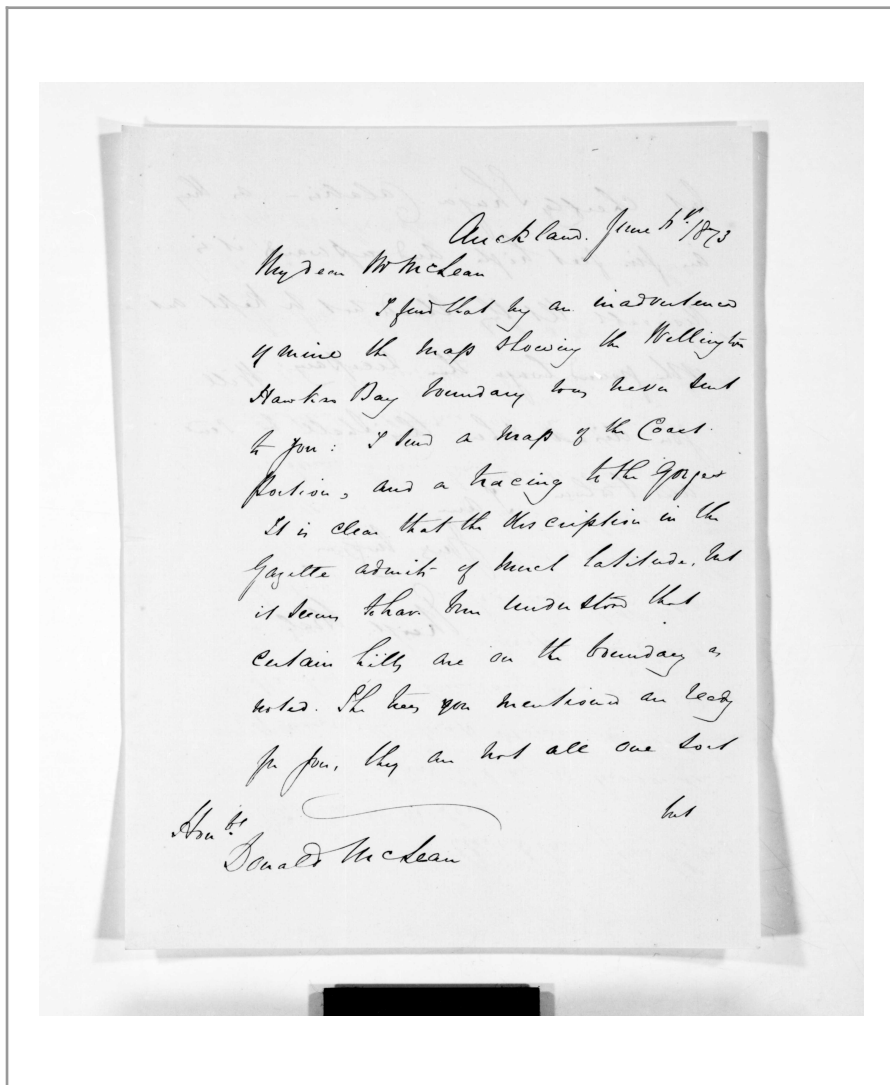 Auckland. June 6th/1873
My dear Mr McLean
I find that by an inadvertence
of mine the map showing the Wellington
Hawkes Bay boundary was never sent
to you: I send a map of the Coast
Portion, and a tracing to the Gorge
It is clear that the description in the
Gazette admits of much latitude, but
it seems to have been understood that
certain hills are on the boundary as
noted. The trees you mentioned are ready
for you, they are not all one sort
but
Honble
Donald McLean